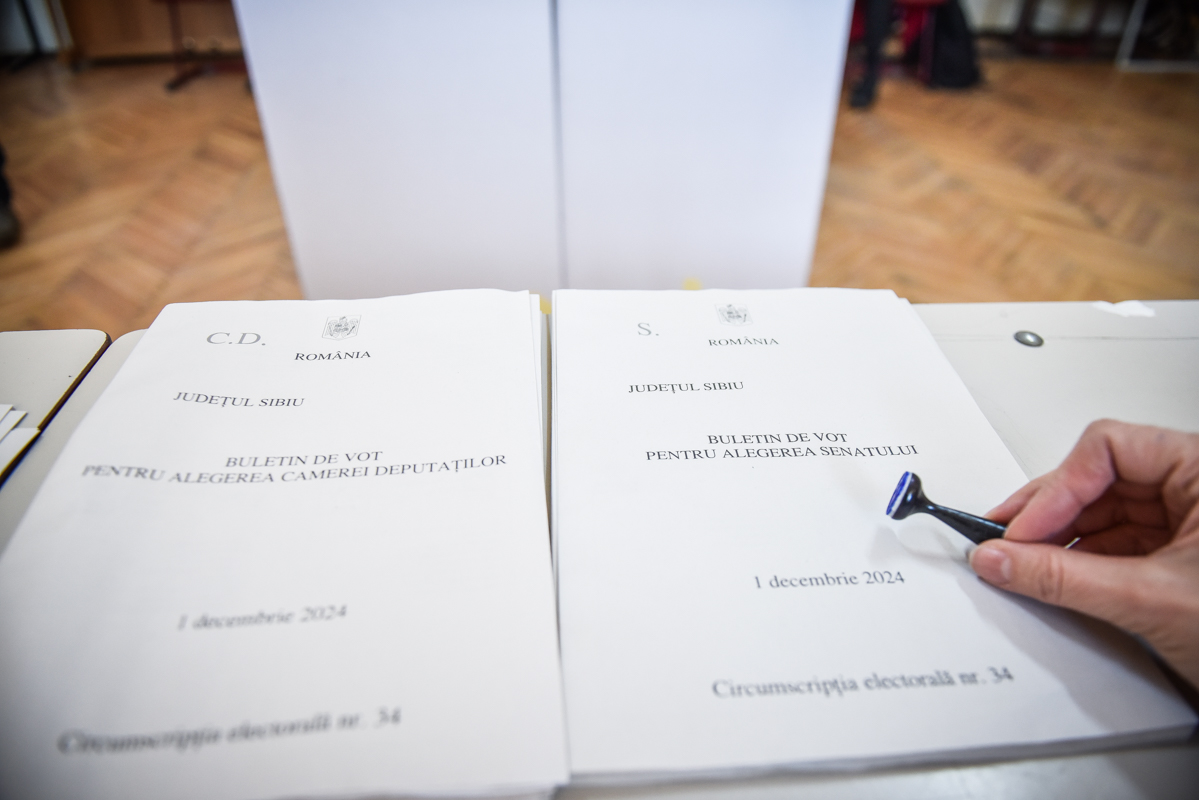 C.D.
ROMÂNIA
JUDEȚUL SIBIU
BULETIN DE VOT
PENTRU ALEGEREA CAMEREI DEPUTAȚILOR
1 decembrie 2024
Circumscripția electorală nr. 34
S.
ROMÂNIA
JUDEȚUL SIBIU
BULETIN DE VOT
PENTRU ALEGEREA SENATULUI
1 decembrie 2024
Circumscripția electorală nr. 34